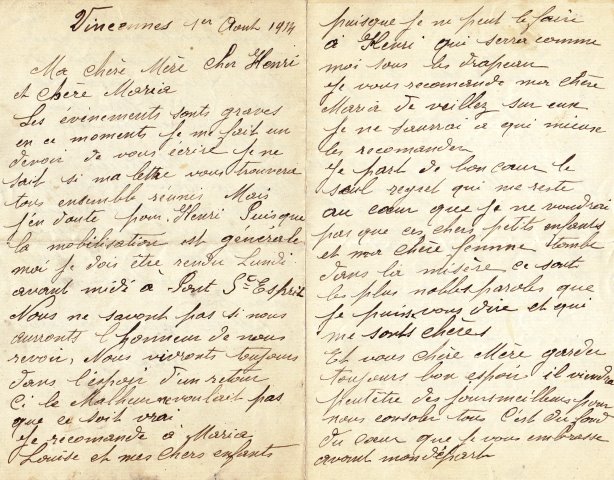 Vincennes 1er Aout 1914
Ma chère Mère Cher Henri
et chère Maria
Les évènements sonts graves
en ce moments je me fait un
devoir de vous écrire je ne
sait si ma lettre vous trouvera
tous ensemble réunis Mais
j'en doute pour Henri Puisque
la mobilisation est générale
moi je dois être rendu Lundi
avant midi à Pont St Esprit
Nous ne savont pas si nous
aurronts l'honneur de nous
revoir, Nous vivronts toujours
dans l'espoir d'un retour
Ci le Malheur voulait pas
que ce soit vrai
Je recomande à Maria
Louise et mes chers enfants
puisque je ne peut le faire
à Henri qui serra comme
moi sous les drapeau
Je vous recomande ma chère
Maria de veillez sur eux
je ne saurrai à qui mieux
les recomander
Je part de bon cœur le
seul regret qui me reste
au cœur que je ne voudrai
pas que ces chers petits enfants
et ma chère femme tombe
dans la misère ce sont
les plus nobles paroles que
je puis vous dire et qui
me sonts chères
Et vous chère Mère garder
toujours bon espoir il viendra
peutêtre des jours meilleurs pour
nous consoler tous C'est du fond
du cœur que je vous embrasse
avant mon départ